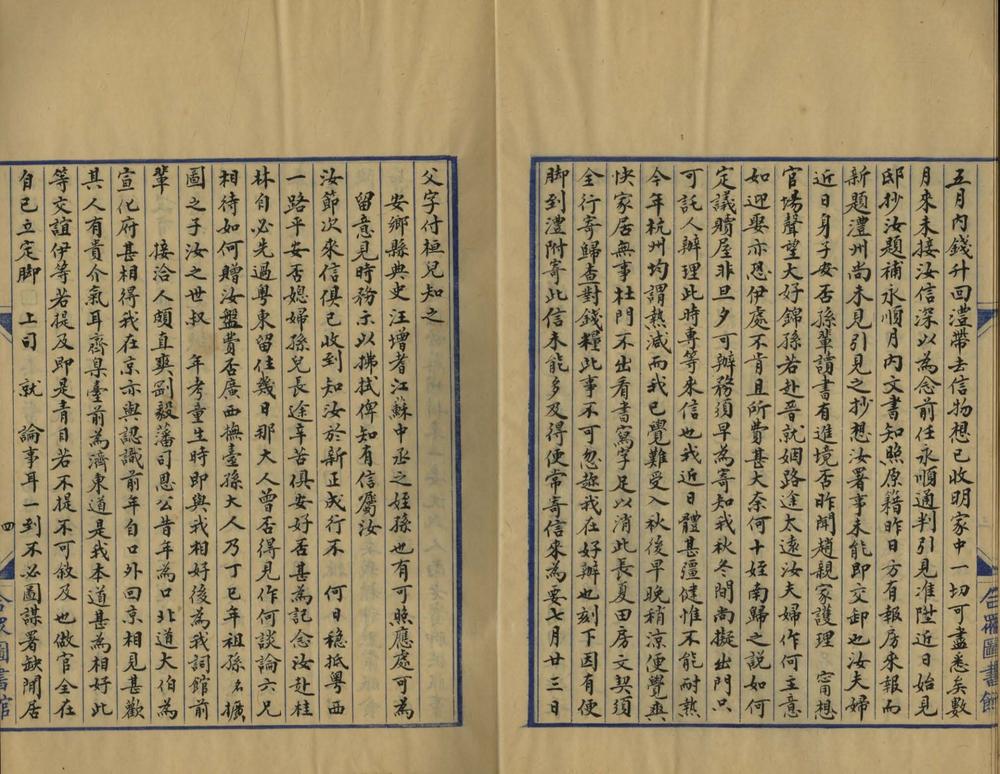 五月內錢升回澧帶去信物想已收明家中一切可盡悉矣數
月來未接汝信深以為念前任永順通判引見准陞近日始見
邸抄汝題補永順月內文書知照原籍昨日方有報房來報而
新題澧州尚未見引見之抄想汝署事未能即交卸也汝夫婦
近日身子安否孫輩讀書有進境否昨聞趙親家護理 甯想
官場聲望大好錦孫若赴晉就姻路途太遠汝夫婦作何主意
如迎娶亦恐伊處不肯且所費甚大奈何十姪南歸之說如何
定議贖屋非旦夕可辦務須早為寄知我秋冬間尚擬出門只
可託人辦理此時專等來信也我近日體甚彊健惟不能耐熱
今年杭州均謂熱減而我已覺難受入秋後早晚稍涼便覺爽
快家居無事杜門不出看書寫字足以消此長夏田房文契須
全行寄歸查對錢糧此事不可忽趁我在好辦也刻下因有便
脚到澧附寄此信未能多及得便常寄信來為要七月廿三日
父字付桓兒知之
安鄉縣典史汪增者江蘇中丞之姪孫也有可照應處可為
留意見時務示以拂拭俾知有信屬汝
汝節次來信俱已收到知汝於新正成行不 何日穩抵粵西
一路平安否媳婦孫兒長途辛苦俱安好否甚為記念汝赴桂
林自必先過粵東留住幾日那大人曾否得見作何談論六兄
相待如何贈汝盤費否廣西撫臺孫大人乃丁巳年祖孫名
圖之子汝之世叔 年考童生時即與我相好後為我詞館前
輩 接洽人頗直爽剛毅藩司恩公昔年為口北道大伯為
宣化府甚相得我在京亦與認識前年自口外回京相見甚歡
其人有貴介氣耳齊臬臺前為濟東道是我本道甚為相好此
等交誼伊等若提及即是青目若不提不可敘及也做官全在
自己立定脚 上司 就 論事耳一到不必圖謀署缺閒居
四
合眾圖書館
合眾圖書館